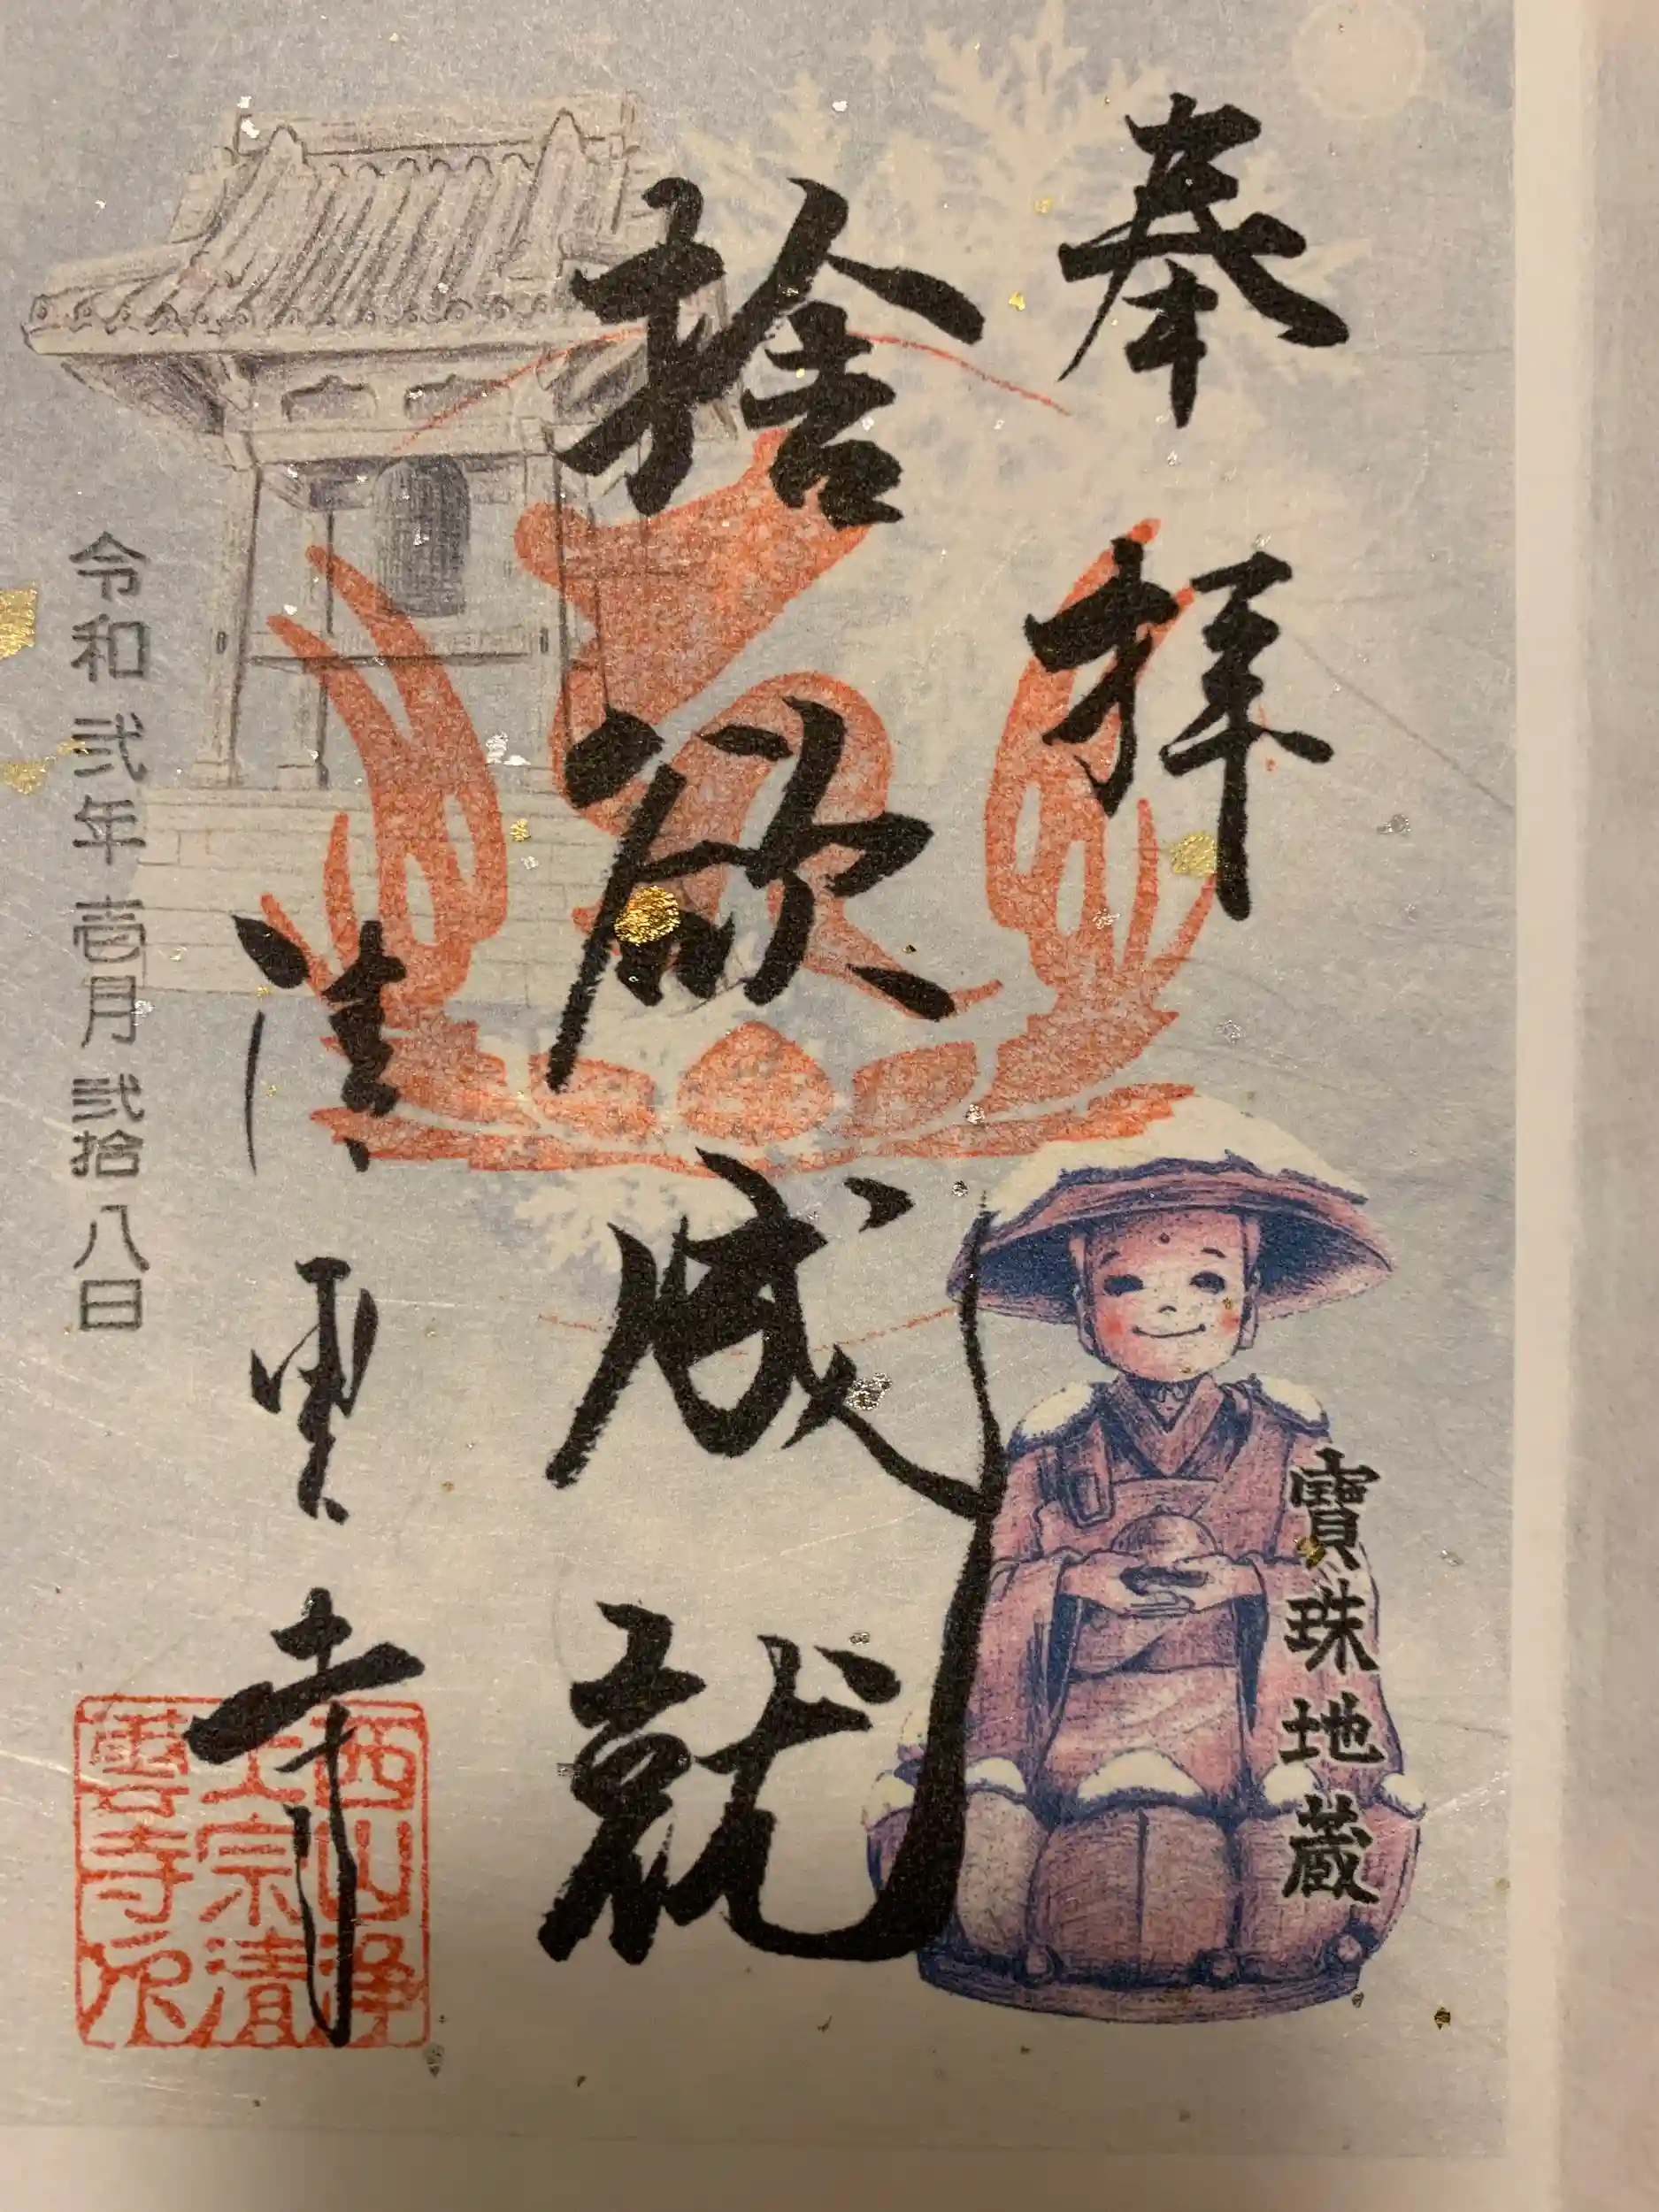 奉拝
寶珠地蔵
捨欲成就
清雲寺
西山浄
土宗清
雲寺印
令和弐年壱月弐拾八日